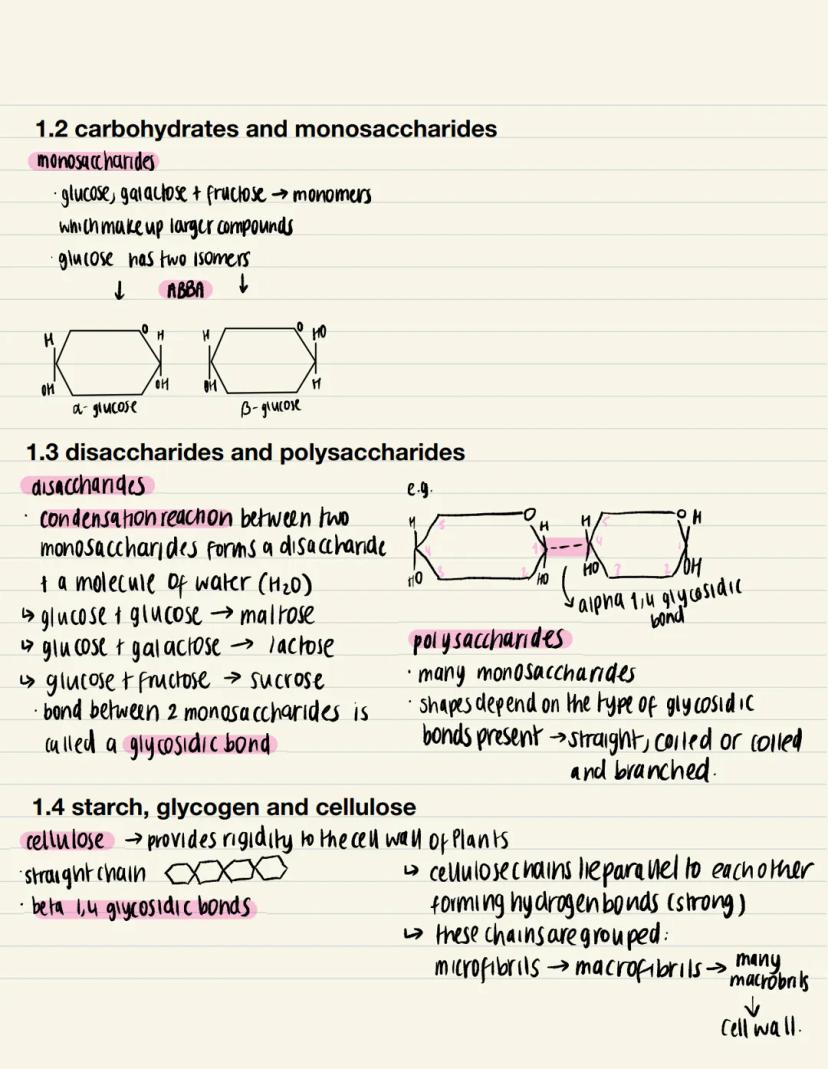 1.2 carbohydrates and monosaccharides
monosaccharides
· glucose, galactose + fructose → monomers
which make up larger compounds
· glucose has two isomers
↓ ABBA ↓
H O H
OH OH
α- glucose
H O HO
OH H
β- glucose
1.3 disaccharides and polysaccharides
disaccharides
· condensation reaction between two
monosaccharides forms a disaccharide
+ a molecule of water (H2O)
↳ glucose + glucose → maltose
↳ glucose + galactose → lactose
↳ glucose + fructose → sucrose
· bond between 2 monosaccharides is
called a glycosidic bond
e.g.
H O H H O H
HO HO HO OH
alpha 1,4 glycosidic
bond
polysaccharides
· many monosaccharides
· shapes depend on the type of glycosidic
bonds present → straight, coiled or coiled
and branched.
1.4 starch, glycogen and cellulose
cellulose → provides rigidity to the cell wall of plants
· straight chain
· beta 1,4 glycosidic bonds
↳ cellulose chains lie parallel to each other
forming hydrogen bonds (strong)
↳ these chains are grouped:
microfibrils → macrofibrils → many
macrobrils
↓
cell wall.